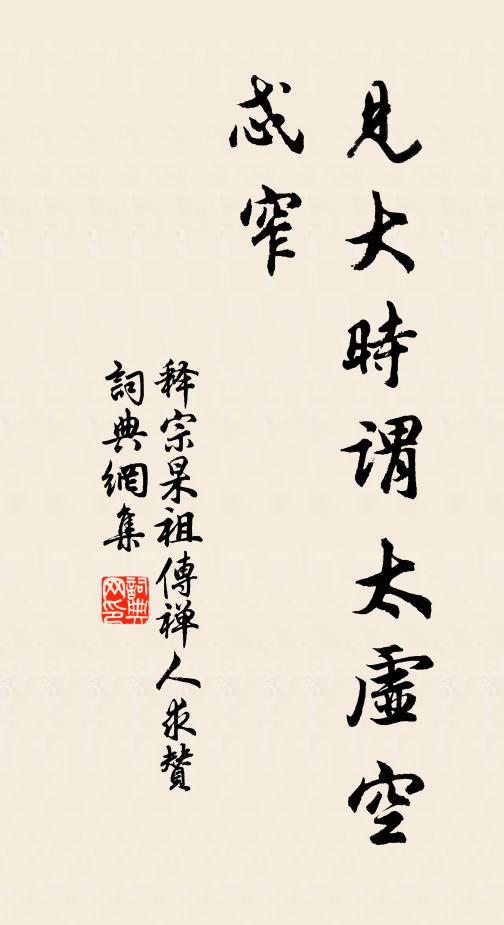 見大時謂太虛空
忒窄
释宗杲祖傳禅人求贊
詞典網集
詞典网印